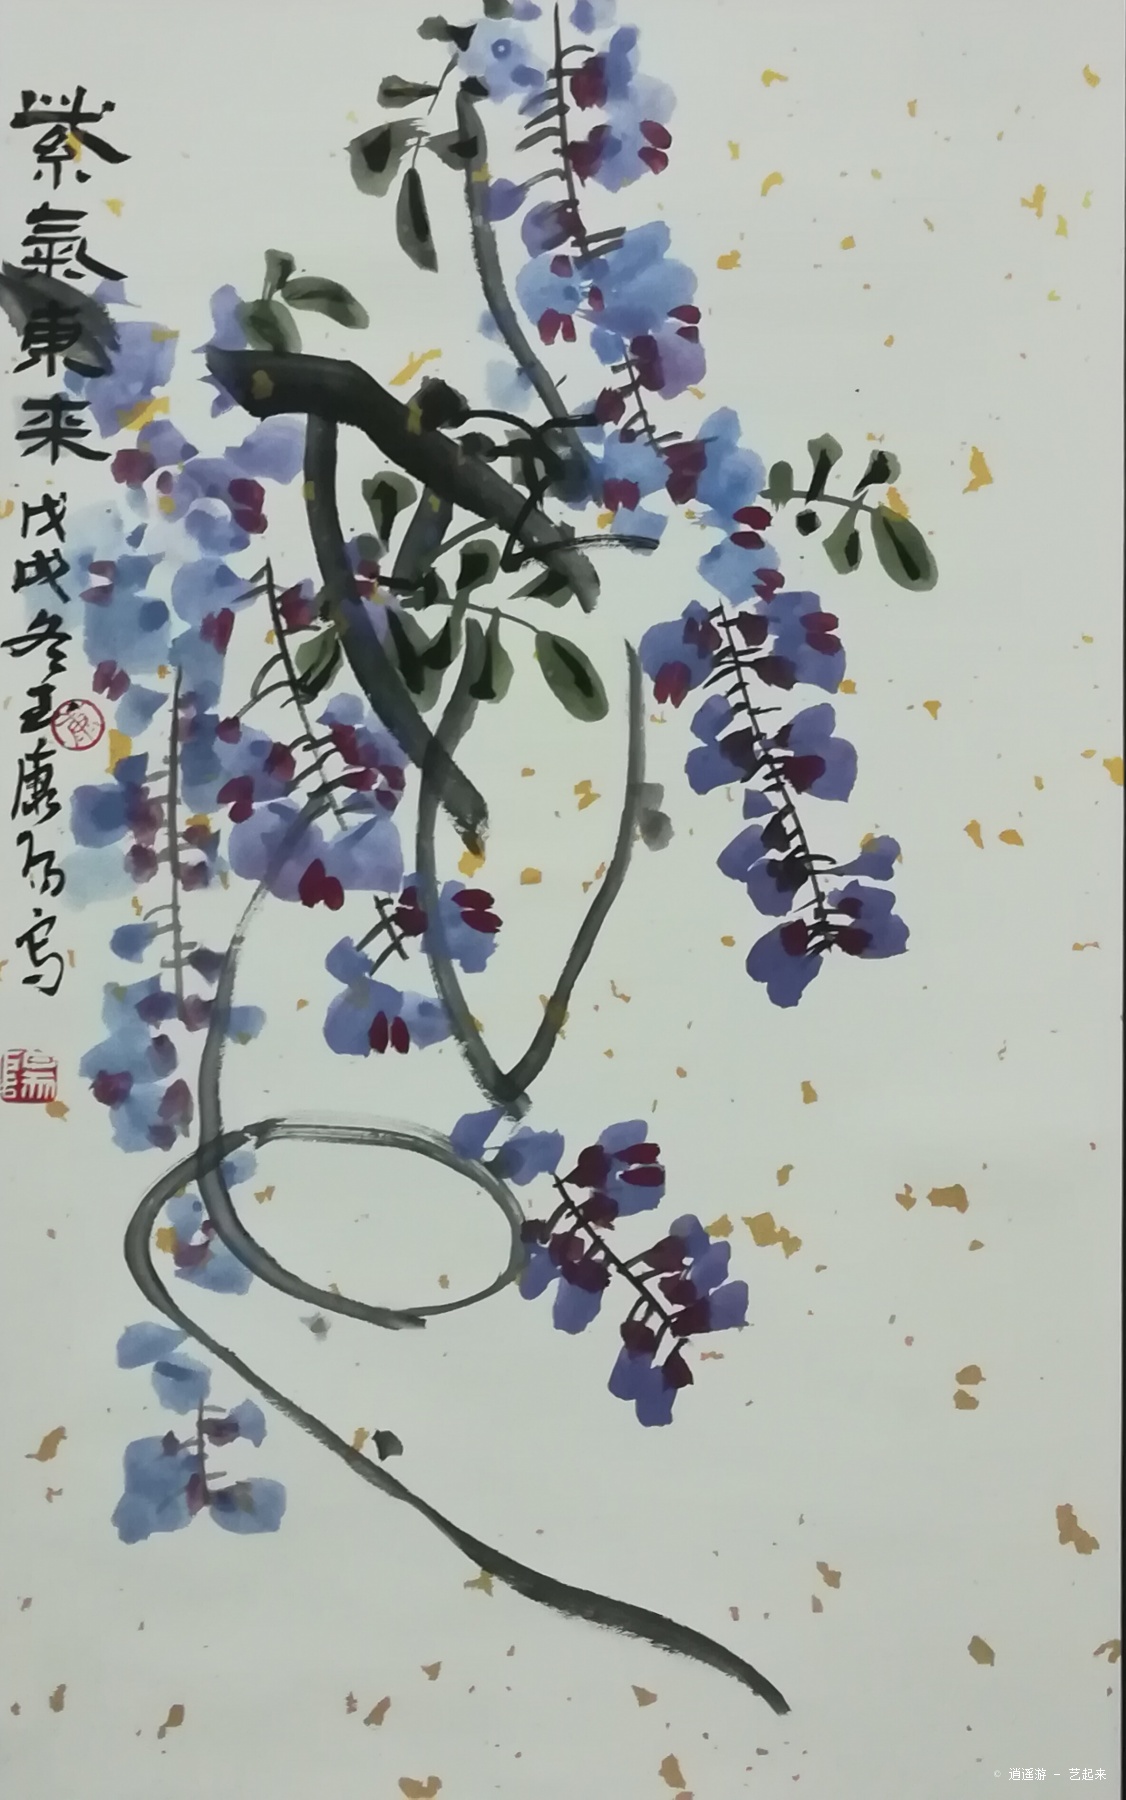 紫氣東来
戊戌冬王康为写
© 逍遥游 - 艺起来